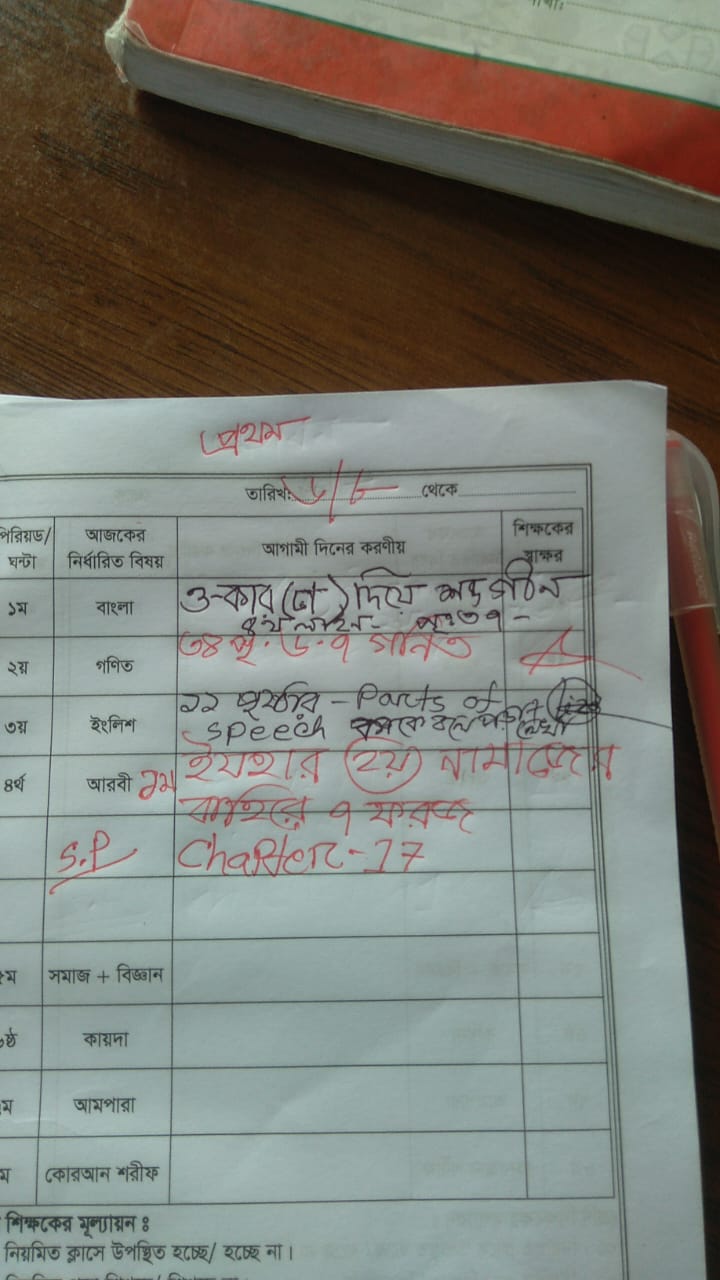 প্রথম
তারিখ: ৬/৮ থেকে
পিরিয়ড/ঘন্টা আজকের নির্ধারিত বিষয় আগামী দিনের করণীয় শিক্ষকের স্বাক্ষর
১ম বাংলা ও-কার (ো) দিয়ে শব্দ গঠন
৪র্থ লাইন- পৃঃ ৩৭ -
২য় গণিত ৩৪ পৃ. ড. ৭ গনিত
৩য় ইংলিশ ২২ পৃষ্ঠার - Parts of
speech কাকে বলে
৪র্থ আরবী ১ম ইযহার (২য়) নামাজের
বাহিরে ৭ ফরজ
S.P Chapter-17
৫ম সমাজ + বিজ্ঞান
৬ষ্ঠ কায়দা
ম আমপারা
ম কোরআন শরীফ
শিক্ষকের মূল্যায়ন ঃ
নিয়মিত ক্লাসে উপস্থিত হচ্ছে/ হচ্ছে না।